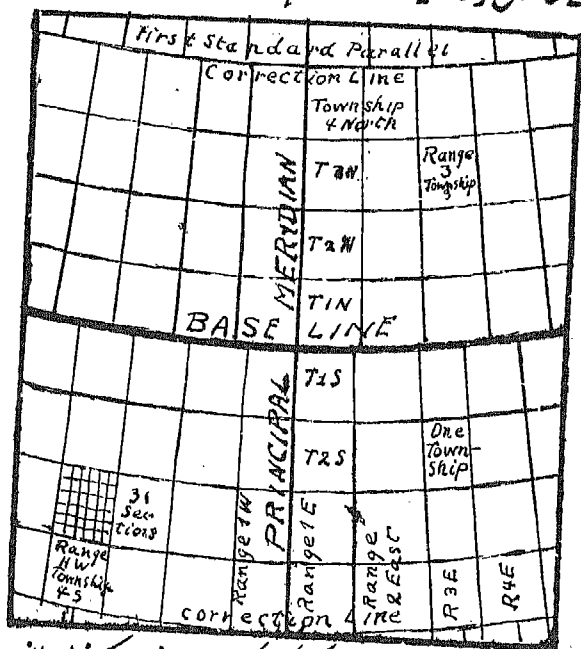 First Standard Parallel
Correction Line
Township
4 North
T3N
Range
3
Township
3
T2N
T1N
MERIDIAN
BASE LINE
PRINCIPAL
T1S
T2S
One
Town-
ship
36
Sec-
tions
Range
4W
Township
4S
Range 1W
Range 1E
Range
2 East
R3E
R4E
Correction Line